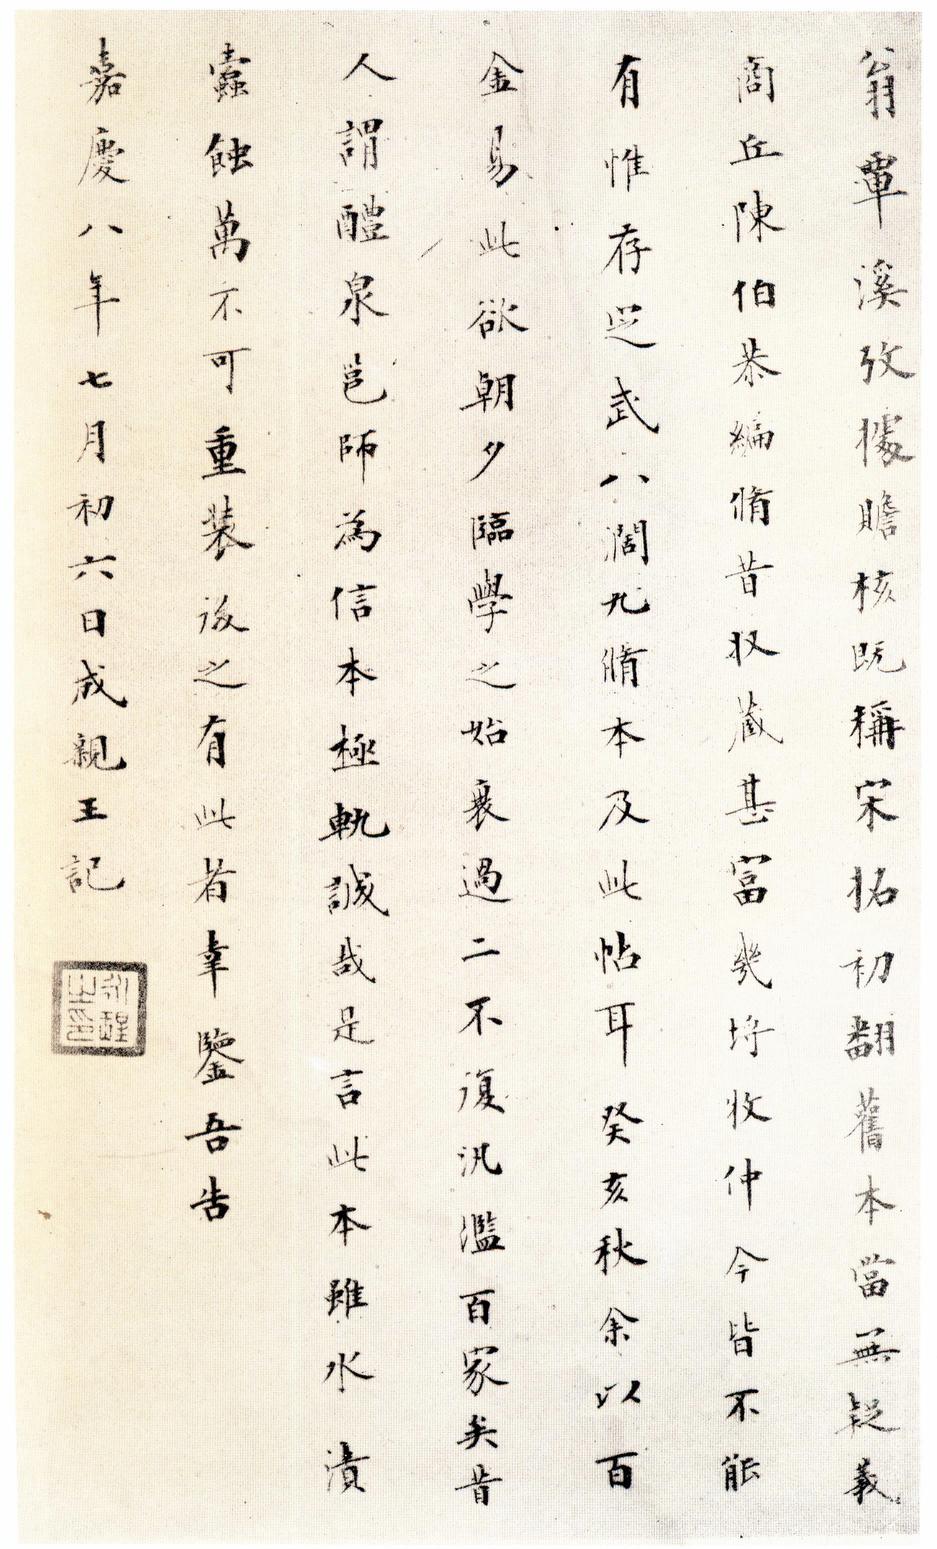 翁覃溪攷據贍核既稱宋拓初翻舊本當無疑義
商丘陳伯恭編脩昔收藏甚富幾埒牧仲今皆不能
有惟存定武八闊九脩本及此帖耳癸亥秋余以百
金易此欲朝夕臨學之始衰過二不復汎濫百家矣昔
人謂醴泉邕師為信本極軌誠哉是言此本雖水漬
蠹蝕萬不可重裝後之有此者幸鑒吾告
嘉慶八年七月初六日成親王記
永瑆之印